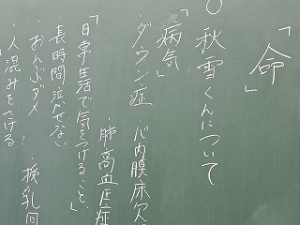 「命」
○秋雪くんについて
「病気」
ダウン症 心内膜床欠
・肺高血圧症
「日常生活で気をつけること」
長時間泣かせない
・おんぶダメ
・人混みをさける
・搾乳回